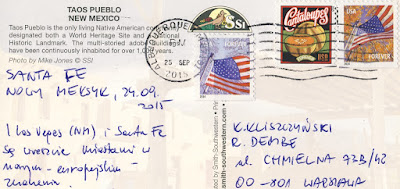 TAOS PUEBLO
NEW MEXICO
Taos Pueblo is the only living Native American community
designated both a World Heritage Site and National
Historic Landmark. The multi-storied adobe buildings
have been continuously inhabited for over 1,000 years.
Photo by Mike Jones © SSI
SANTA FE
NOWY MEKSYK, 24.09.
2015
I Las Vegas (NM) i Santa Fe
są uroczymi miastami w
znaczeniu.
ALBUQUERQUE
25 SEP
2015
SSI
FOREVER
Cantaloupes
USA
FOREVER
Smith-Southwestern
smith-southwestern.com
K. KLISZCZYŃSKI
R. DEMBE
ul. CHMIELNA 73B/42
00-801 WARSZAWA